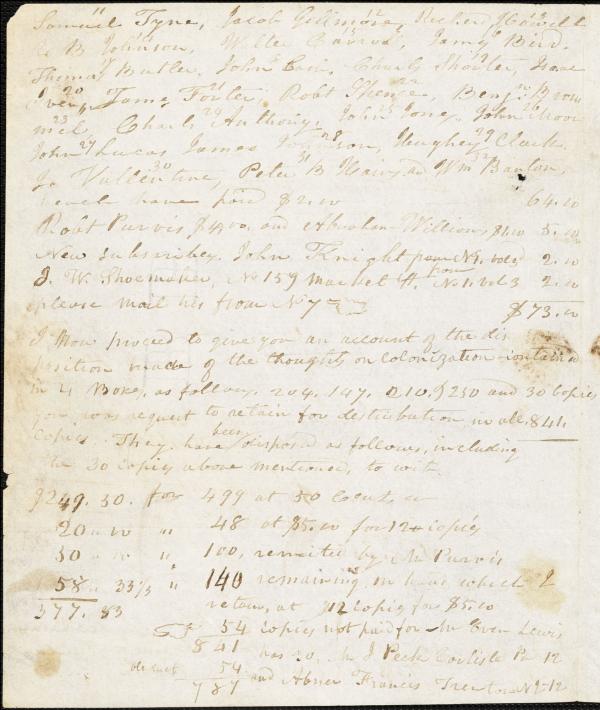 Samuel Tyne, Jacob Gillmore, Richard Howell
B Johnson, Walter James Bird,
Thomas Butler, John Charls Shorter, Isaac
James Forter, Robt Spence, Benj. Brom
mel, Charls Anthony, John Jone, John Moor
John Lucas James Johnson, Clark
Jo Vallentine, Peter B Wm Banton,
have paid $2.00 64.00
Robt Purvis $4.00, and Abraham Williams $1.00 5.00
New subscribers, John Knight from No 1. vol 3 2.00
J. W. Shoemaker, No 159 Market St. from No 1. vol 3 2.00
please mail his from No 7 $73.00
I Now proceed to give you an account of the dis
position made of the thoughts on Colonization contained
in 4 Boxes, as follows, 204. 147. 210. & 250 and 30 Copies
you was request to retain for destribution in all. 841.
Copies. They have been disposed as follows, including
the 30 Copies above mentioned, to wit.
$249. 50. for 499 at 50 Cent,
20 " 00 " 48 at $5.00 for 12 copies
50 " 00 " 100, remitted by Mr Purvis
58 " 33 1/3 " 140 remaining in hand which I
377. 83 retain, at 12 copies for $5.00
54 Copies not paid for Mr Even Lewis
841 has 30, Mr J Peck Carlisle Pa 12
deduct 54 and Abner Francis Trenton NJ 12
787